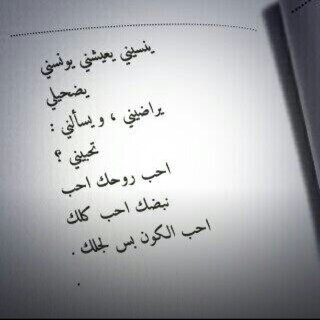 ينسيني يعيشني يونسني
يضحيلي
يراضيني ، ويسألني :
تحبيني ؟
احب روحك احب
نبضك احب كلك
احب الكون بس لجلك .
.